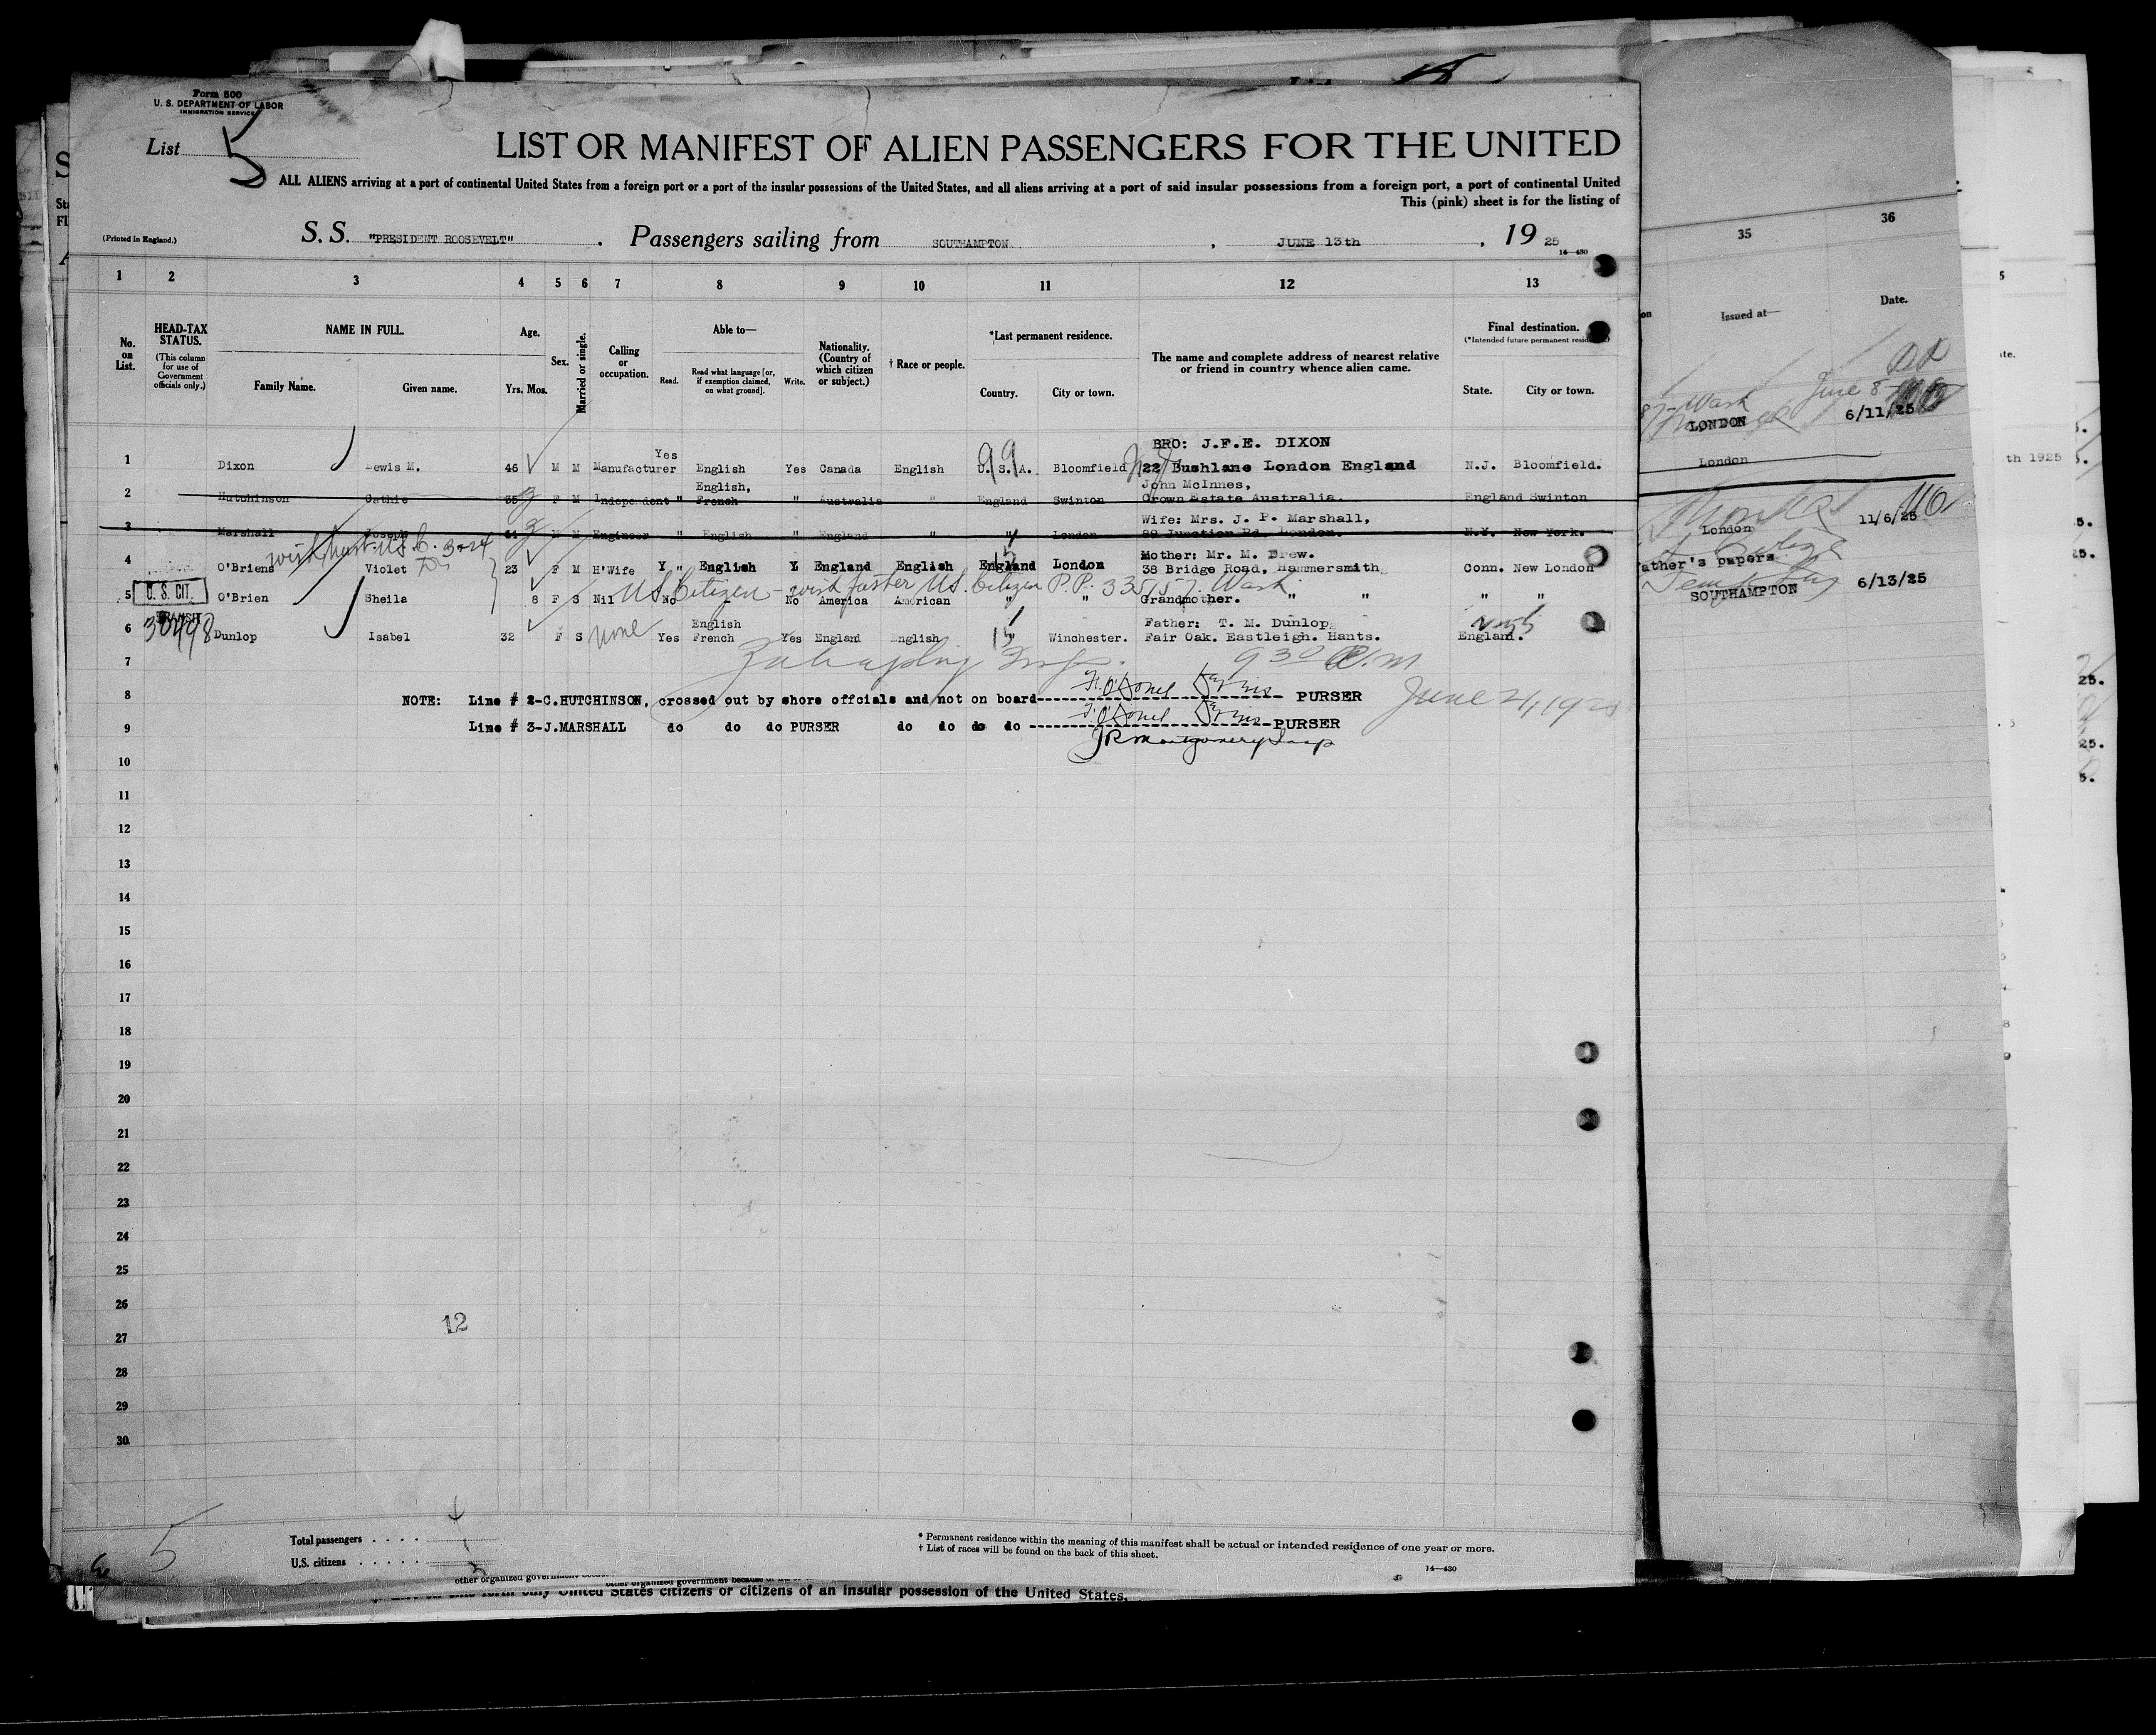 Form 500
U. S. DEPARTMENT OF LABOR
IMMIGRATION SERVICE
List 5
LIST OR MANIFEST OF ALIEN PASSENGERS FOR THE UNITED
ALL ALIENS arriving at a port of continental United States from a foreign port or a port of the insular possessions of the United States, and all aliens arriving at a port of said insular possessions from a foreign port, a port of continental United
This (pink) sheet is for the listing of
(Printed in England.)
S. S. "PRESIDENT ROOSEVELT" . Passengers sailing from SOUTHAMPTON , JUNE 13th , 19 25
14—430
1 2 3 4 5 6 7 8 9 10 11 12 13 35 36
No. on List.
HEAD-TAX STATUS.
(This column for use of Government officials only.)
NAME IN FULL.
Family Name. Given name.
Age.
Yrs. Mos.
Sex.
Married or single.
Calling or occupation.
Able to—
Read. Read what language [or, if exemption claimed, on what ground]. Write.
Nationality. (Country of which citizen or subject.)
† Race or people.
*Last permanent residence.
Country. City or town.
The name and complete address of nearest relative or friend in country whence alien came.
Final destination.
(*Intended future permanent
State. City or town.
Issued at— Date.
BRO: J.F.E. DIXON
1 Dixon Lewis M. 46 M M Manufacturer Yes English Yes Canada English U.S.A. Bloomfield 22 Bushlane London England N.J. Bloomfield.
87- Wash June 8
LONDON 6/11/25
English, John McInnes,
2 Hutchinson Cathie 35 F M Independent " French " Australia " England Swinton Crown Estate Australia. England Swinton
London
Wife: Mrs. J. P. Marshall,
3 Marshall Joseph 41 M M Engineer " English " England " " London 89 Junction Rd. London. N.Y. New York.
London 11/6/25
with husb. U.S.C. 3-24
Mother: Mr. M. Drew.
4 O'Briens Violet 23 F M H'Wife Y " English Y England English England London 38 Bridge Road, Hammersmith Conn. New London
ather's papers
US Citizen - with father US. Citizen P.P. 335157. Wash
5 U. S. CIT. O'Brien Sheila 8 F S Nil No - No America American " " Grandmother. " " " "
SOUTHAMPTON 6/13/25
English Father: T. M. Dunlop
6 30498 Dunlop Isabel 32 F S none Yes French Yes England English 15 " Winchester. Fair Oak. Eastleigh. Hants. England.
7
930 a.m
8 NOTE: Line # 2-C.HUTCHINSON, crossed out by shore offcials and not on board PURSER
June 21, 1925
9 Line # 3-J.MARSHALL do do do PURSER do do do do PURSER
J R Montgomery Insp
10
11
12
13
14
15
16
17
18
19
20
21
22
23
24
25
26
12
27
28
29
30
5
Total passengers . . . .
U.S. citizens . . . . .
* Permanent residence within the meaning of this manifest shall be actual or intended residence of one year or more.
† List of races will be found on the back of this sheet.
14—430
other organized government
United States citizens or citizens of an insular possession of the United States.
th 1925